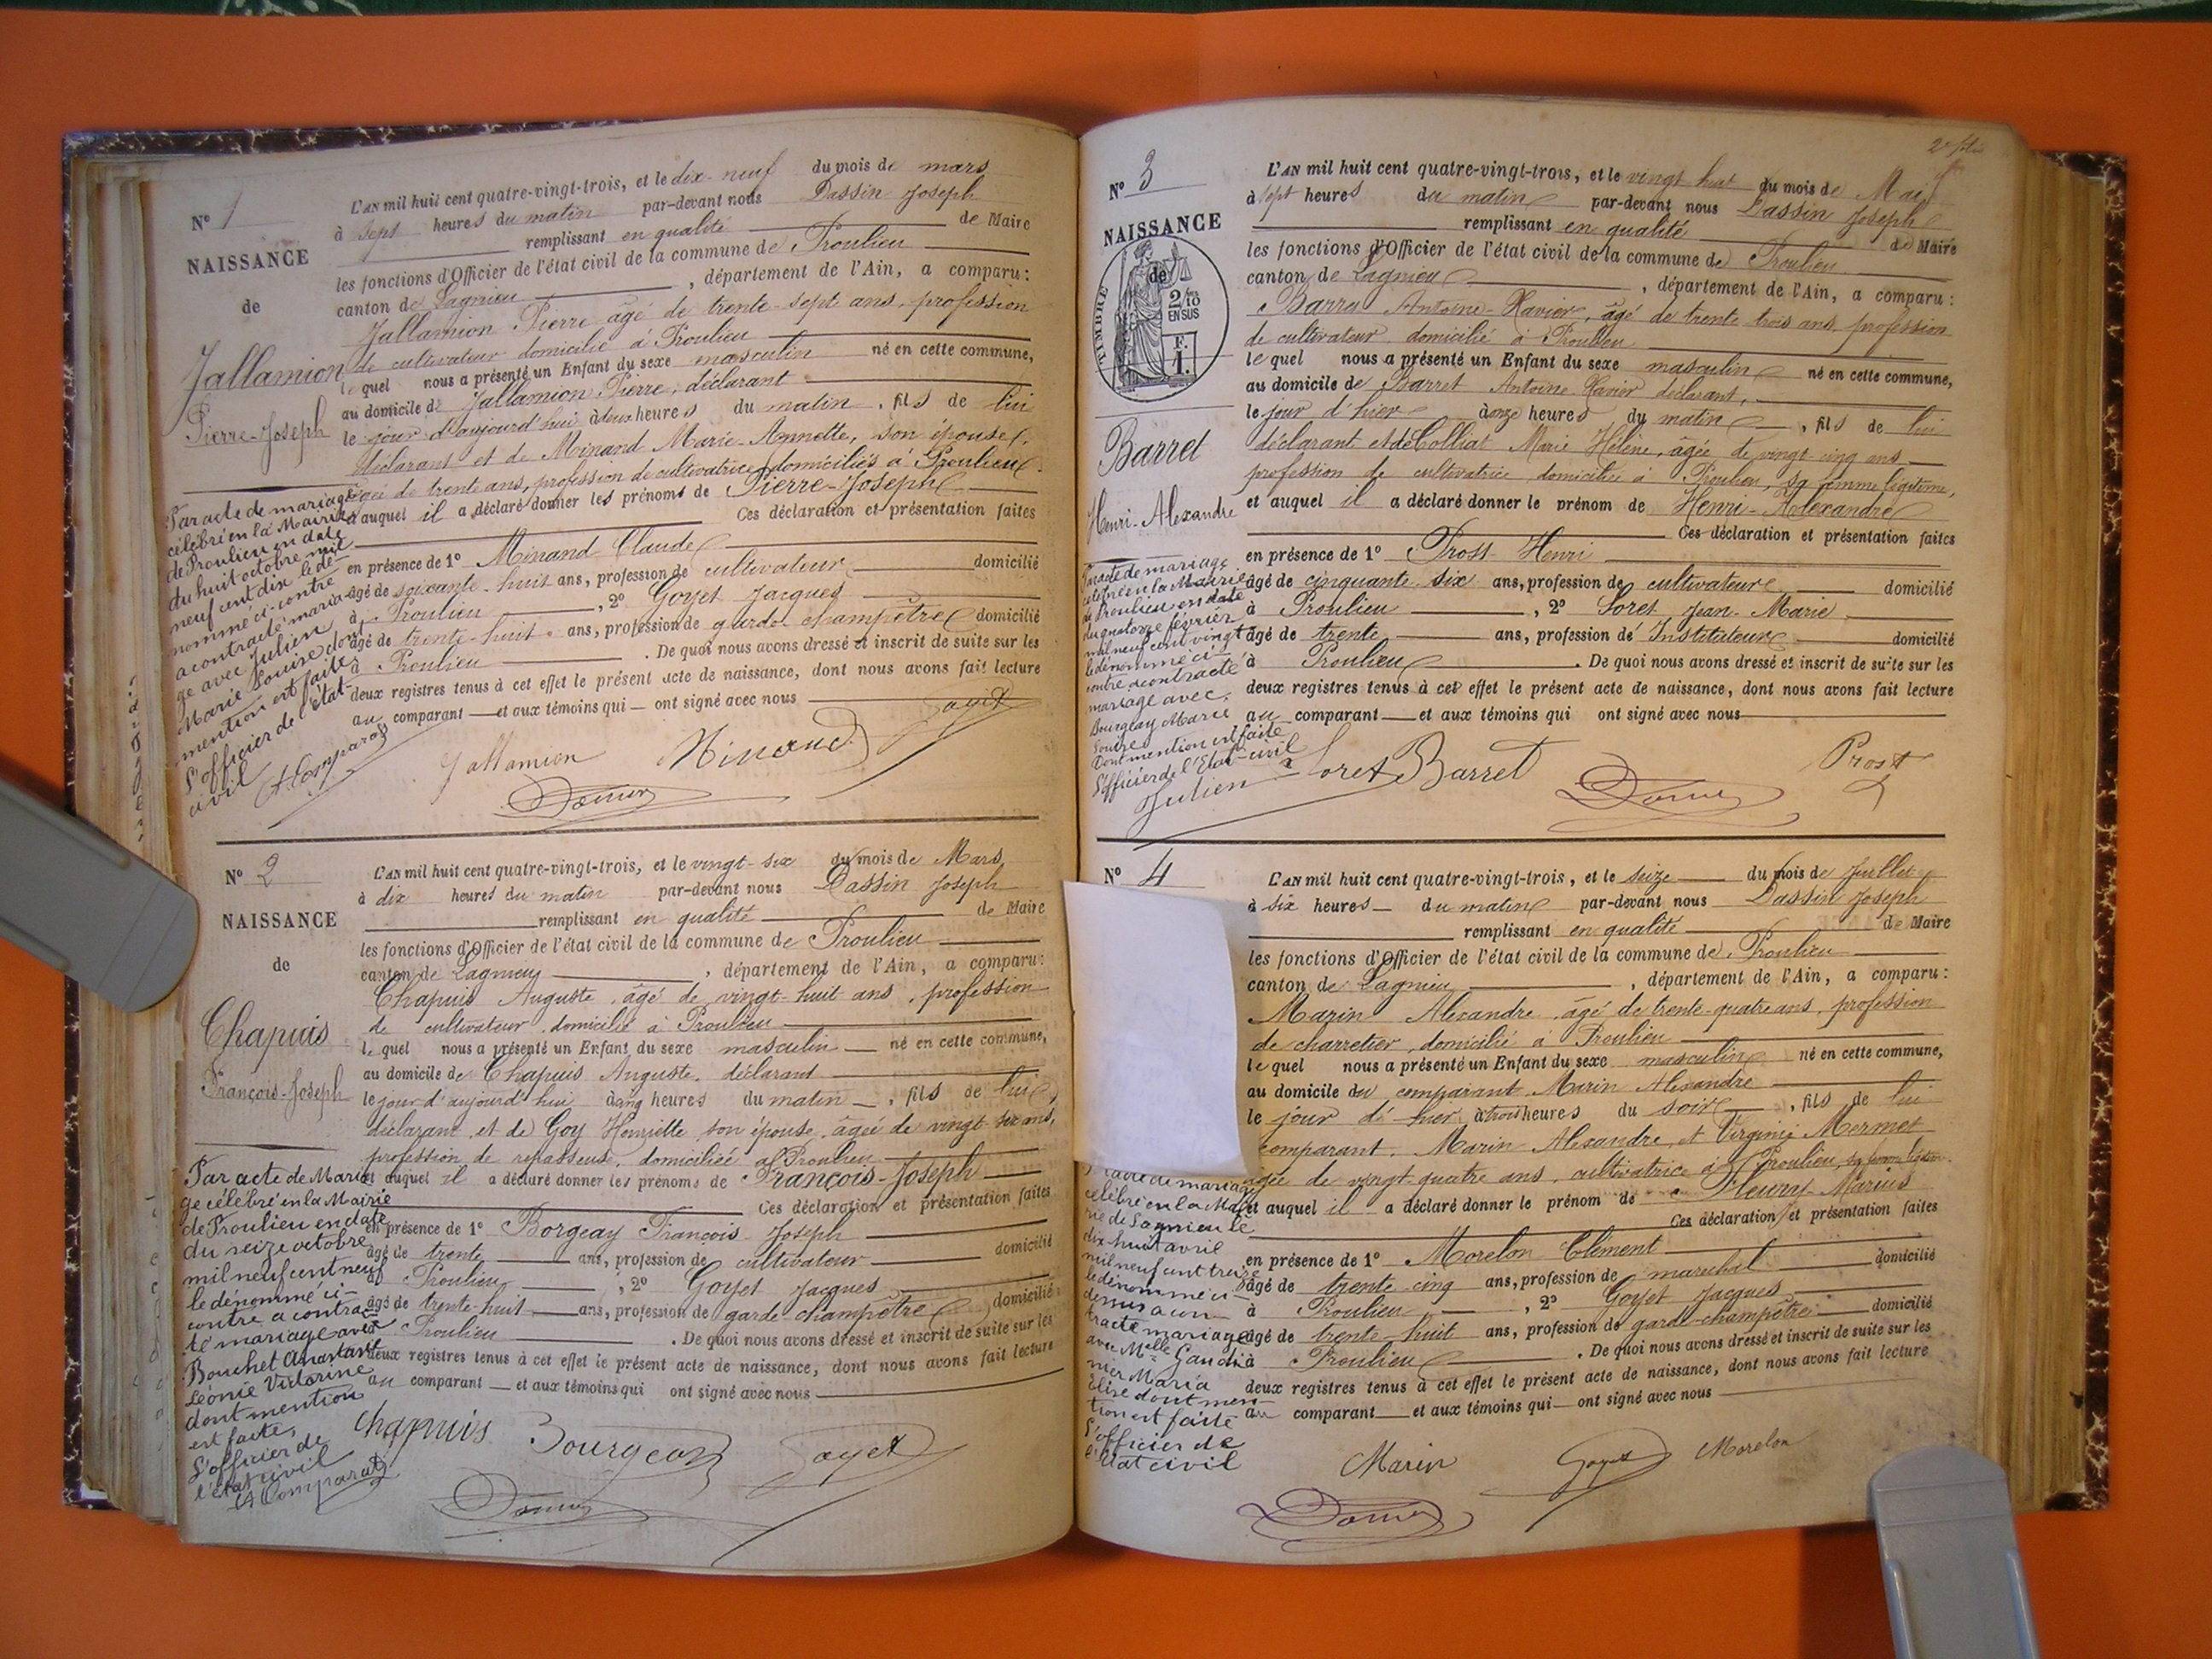 Nº 1
NAISSANCE
de
Jallamion
Pierre-Joseph
L'AN mil huit cent quatre-vingt-trois, et le dix-neuf du mois de mars
à sept heures du matin par-devant nous Dassin Joseph
remplissant en qualité de Maire
les fonctions d'Officier de l'état civil de la commune de Proulieu
canton de Lagnieu, département de l'Ain, a comparu:
Jallamion Pierre âgé de trente-sept ans, profession
de cultivateur domicilié à Proulieu
lequel nous a présenté un Enfant du sexe masculin né en cette commune,
au domicile de Jallamion Pierre, déclarant
le jour d'aujourd'hui à deux heures du matin, fils de lui
déclarant et de Minand Marie-Annette, son épouse,
âgée de trente ans, profession de cultivatrice domiciliés à Proulieu
et auquel il a déclaré donner les prénoms de Pierre-Joseph
Ces déclaration et présentation faites
en présence de 1º Minand Claude
âgé de soixante-huit ans, profession de cultivateur domicilié
à Proulieu, 2º Goyet Jacques
âgé de trente-huit ans, profession de garde champêtre domicilié
à Proulieu. De quoi nous avons dressé et inscrit de suite sur les
deux registres tenus à cet effet le présent acte de naissance, dont nous avons fait lecture
au comparant et aux témoins qui ont signé avec nous
Par acte de mariage
célébré en la Mairie
de Proulieu en date
du huit octobre mil
neuf cent dix le dé-
nommé ci-contre
a contracté maria-
ge avec Julien
Marie Louise dont
mention est faite
L'officier de l'état-
civil
A Comparat
Jallamion Minand Goyet
Nº 2
NAISSANCE
de
Chapuis
François-Joseph
L'AN mil huit cent quatre-vingt-trois, et le vingt-six du mois de Mars
à dix heures du matin par-devant nous Dassin Joseph
remplissant en qualité de Maire
les fonctions d'Officier de l'état civil de la commune de Proulieu
canton de Lagnieu, département de l'Ain, a comparu:
Chapuis Auguste, âgé de vingt-huit ans, profession
de cultivateur, domicilié à Proulieu
lequel nous a présenté un Enfant du sexe masculin né en cette commune,
au domicile de Chapuis Auguste, déclarant
le jour d'aujourd'hui à cinq heures du matin, fils de lui
déclarant et de Goy Henriette son épouse, âgée de vingt-six ans,
profession de repasseuse, domiciliée à Proulieu
et auquel il a déclaré donner les prénoms de François-Joseph
Ces déclaration et présentation faites
en présence de 1º Borgeay François Joseph
âgé de trente ans, profession de cultivateur domicilié
à Proulieu, 2º Goyet Jacques
âgé de trente-huit ans, profession de garde champêtre domicilié
à Proulieu. De quoi nous avons dressé et inscrit de suite sur les
deux registres tenus à cet effet le présent acte de naissance, dont nous avons fait lecture
au comparant et aux témoins qui ont signé avec nous
Par acte de Maria-
ge célébré en la Mairie
de Proulieu en date
du seize octobre
mil neuf cent neuf
le dénommé ci-
contre a contrac-
té mariage avec
Bouchet
Léonie Victorine
dont mention
est faite,
L'officier de
l'état civil
A Comparat
Chapuis Bourgeay Goyet
2e
Nº 3
NAISSANCE
de
TIMBRE
2/10
EN SUS
F.
1.
Barret
Henri-Alexandre
L'AN mil huit cent quatre-vingt-trois, et le vingt huit du mois de Mai
à sept heures du matin par-devant nous Dassin Joseph
remplissant en qualité de Maire
les fonctions d'Officier de l'état civil de la commune de Proulieu
canton de Lagnieu, département de l'Ain, a comparu:
Barret Antoine-Xavier, âgé de trente trois ans, profession
de cultivateur, domicilié à Proulieu
lequel nous a présenté un Enfant du sexe masculin né en cette commune,
au domicile de Barret Antoine Xavier déclarant,
le jour d'hier à onze heures du matin, fils de lui
déclarant et de Colliat Marie Hélène, âgée de vingt cinq ans
profession de cultivatrice domiciliée à Proulieu, sa femme légitime,
et auquel il a déclaré donner le prénom de Henri-Alexandre
Ces déclaration et présentation faites
en présence de 1º Prost Henri
âgé de cinquante six ans, profession de cultivateur domicilié
à Proulieu, 2º Loret Jean-Marie
âgé de trente ans, profession de Instituteur domicilié
à Proulieu. De quoi nous avons dressé et inscrit de suite sur les
deux registres tenus à cet effet le présent acte de naissance, dont nous avons fait lecture
au comparant et aux témoins qui ont signé avec nous
Par acte de mariage
célébré en la Mairie
de Proulieu en date
du quatorze février
mil neuf cent vingt
le dénommé ci-
contre a contracté
mariage avec
Bourgeay Marie
Louise
Dont mention est faite
L'officier de l'Etat-civil
Julien
Loret Barret Prost
Nº 4
L'AN mil huit cent quatre-vingt-trois, et le seize du mois de Juillet
à six heures du matin par-devant nous Dassin Joseph
remplissant en qualité de Maire
les fonctions d'Officier de l'état civil de la commune de Proulieu
canton de Lagnieu, département de l'Ain, a comparu:
Marin Alexandre, âgé de trente-quatre ans, profession
de charretier, domicilié à Proulieu
lequel nous a présenté un Enfant du sexe masculin né en cette commune,
au domicile du comparant Marin Alexandre
le jour d'hier, à trois heures du soir, fils de lui
comparant, Marin Alexandre, et Virginie Mermet
âgée de vingt-quatre ans, cultivatrice à Proulieu, sa femme légitime
et auquel il a déclaré donner le prénom de Fleury-Marius
Ces déclaration et présentation faites
en présence de 1º Morelon Clément
âgé de trente-cinq ans, profession de maréchal domicilié
à Proulieu, 2º Goyet Jacques
âgé de trente-huit ans, profession de garde-champêtre domicilié
à Proulieu. De quoi nous avons dressé et inscrit de suite sur les
deux registres tenus à cet effet le présent acte de naissance, dont nous avons fait lecture
au comparant et aux témoins qui ont signé avec nous
acte de mariage
célébré en la Mai-
rie de Lagnieu le
dix-huit avril
mil neuf cent treize
le dénommé ci-
dessus a con-
tracté mariage
avec Mlle Gaudi-
nier Maria
Elise dont men-
tion est faite
L'officier de
l'Etat civil
Marin Goyet Morelon